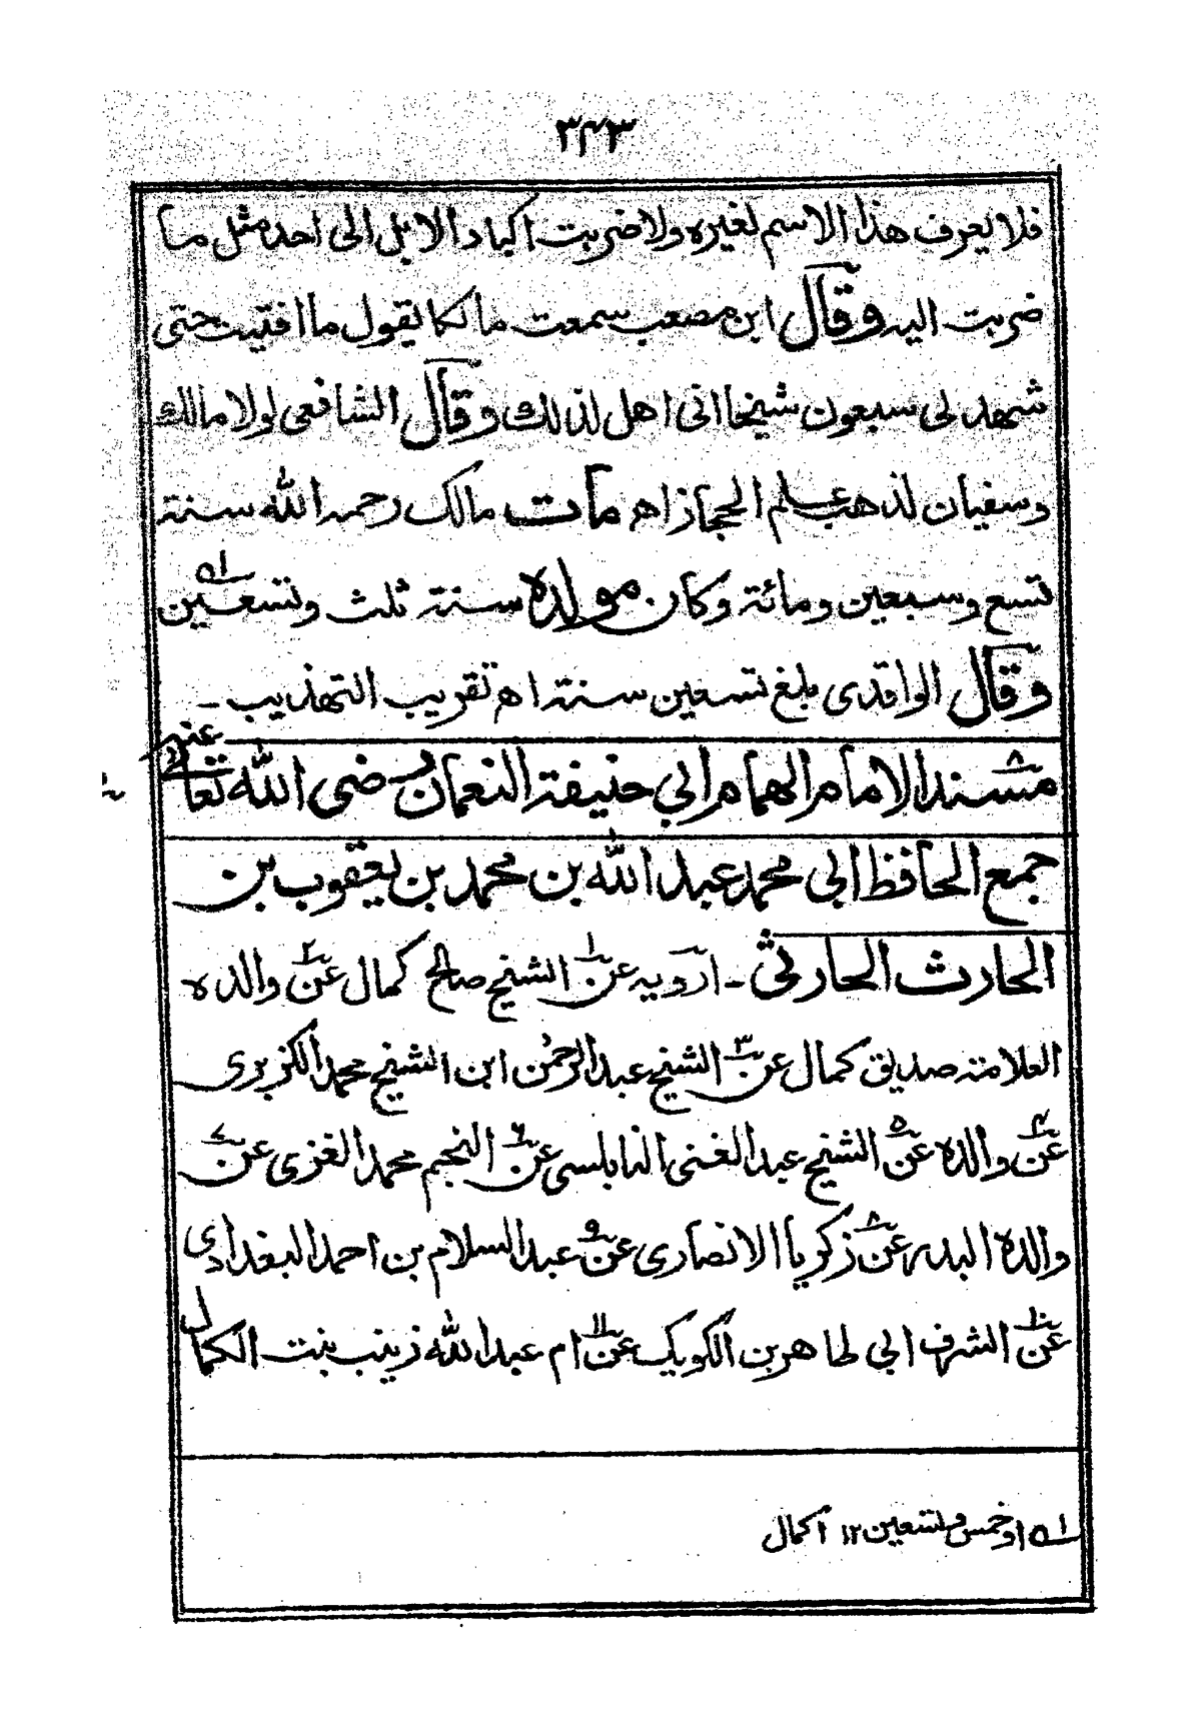 ٣٤٣
فلا يعرف هذا الاسم لغيره ولا ضربت اكباد الابل الى احد مثل ما
ضربت اليه وقال ابن مصعب سمعت مالكا يقول ما افتيت حتى
شهد لى سبعون شيخا انى اهل لذلك وقال الشافعى لولا مالك
وسفيان لذهب علم الحجاز اه مات مالك رحمه الله سنة
تسع وسبعين ومائة وكان مولده سنة ثلث وتسعين ١ه
وقال الواقدى بلغ تسعين سنة اه تقريب التهذيب -
٨ مسند الامام الهمام ابي حنيفة النعمان رضى الله تعالى عنه
جمع الحافظ ابى محمد عبد الله بن محمد بن يعقوب بن
الحارث الحارثى - ارويه عن ١ الشيخ صالح كمال عن ٢ والده
العلامة صديق كمال عن ٣ الشيخ عبد الرحمٰن ابن الشيخ محمد الكزبرى
عن ٤ والده عن ٥ الشيخ عبد الغنى النابلسى عن ٦ النجم محمد الغزى عن ٧
والده البدر عن ٨ زكريا الانصارى عن ٩ عبد السلام بن احمد البغدادى
عن ١٠ الشرف ابي طاهر بن الكويك عن ١١ ام عبد الله زينب بنت الكمال
١ه او خمس وتسعين ١٢ اكمال